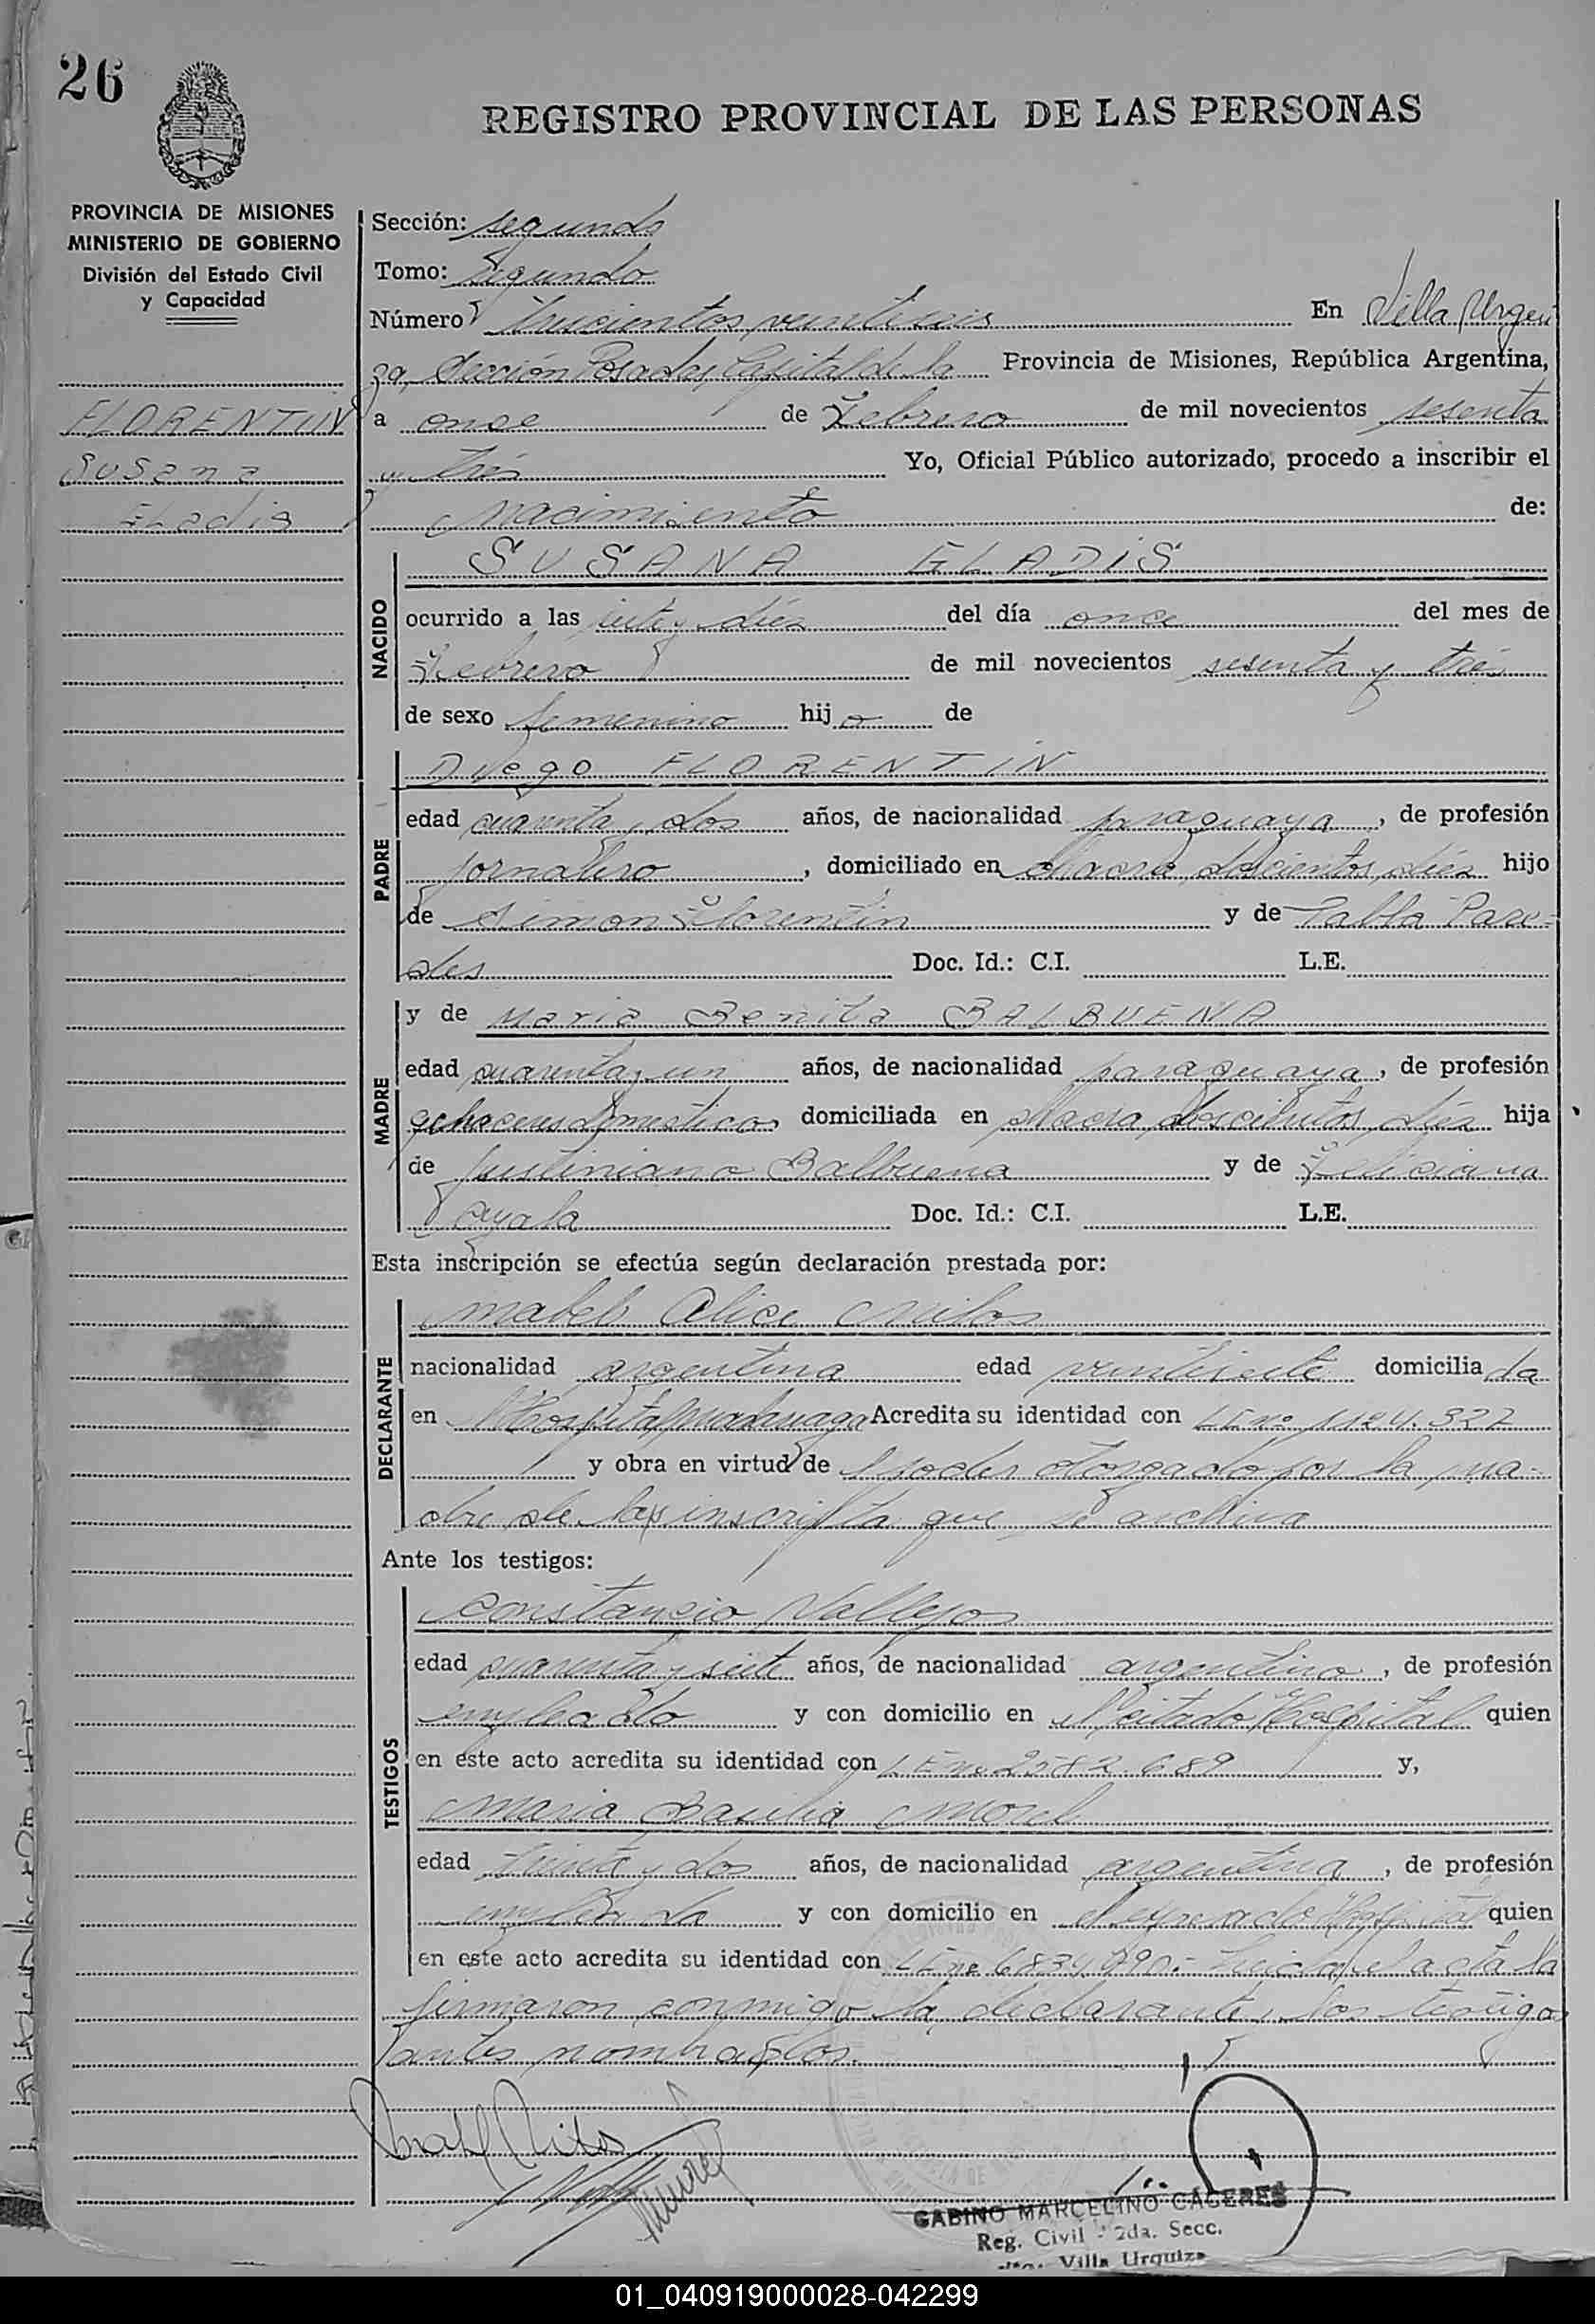 26
REGISTRO PROVINCIAL DE LAS PERSONAS
PROVINCIA DE MISIONES
MINISTERIO DE GOBIERNO
División del Estado Civil
y Capacidad
FLORENTIN
Susana
Eladis
Sección: segunda
Tomo: segundo
Número trescientos veintiseis En Villa Urqui
za, Sección Posadas, Capital de la Provincia de Misiones, República Argentina,
a once de Febrero de mil novecientos sesenta
y tres Yo, Oficial Público autorizado, procedo a inscribir el
nacimiento de:
NACIDO
SUSANA ELADIS
ocurrido a las siete y diez del día once del mes de
Febrero de mil novecientos sesenta y tres
de sexo femenino hija de
PADRE
Diego FLORENTIN
edad cuarenta y dos años, de nacionalidad paraguaya, de profesión
jornalero, domiciliado en chacra doscientos diez hijo
de Simon Florentin y de Pabla Pare-
des Doc. Id.: C.I. L.E.
MADRE
y de Maria Benita BALBUENA
edad cuarenta y un años, de nacionalidad paraguaya, de profesión
quehaceres domesticos domiciliada en chacra doscientos diez hija
de Justiniano Balbuena y de Feliciana
Ayala Doc. Id.: C.I. L.E.
Esta inscripción se efectúa según declaración prestada por:
DECLARANTE
Mabel Alice Milos
nacionalidad argentina edad veintisiete domiciliada
en Hospital Madariaga Acredita su identidad con
y obra en virtud de poder otorgado por la ma-
dre de la inscripta que se archiva
Ante los testigos:
TESTIGOS
Constancio Vallejos
edad cuarenta y siete años, de nacionalidad argentino, de profesión
empleado y con domicilio en el citado Hospital quien
en este acto acredita su identidad con LE no 2582.689 y,
Maria Morel
edad treinta y dos años, de nacionalidad argentina, de profesión
empleada y con domicilio en el expresado Hospital quien
en este acto acredita su identidad con LE no Leida el acta la
firmaron conmigo la declarante y los testigos
antes nombrados.
Mabel Milos
Morel
GABINO MARCELINO CACERES
Reg. Civil - 2da. Secc.
Villa Urquiza
01_040919000028-042299